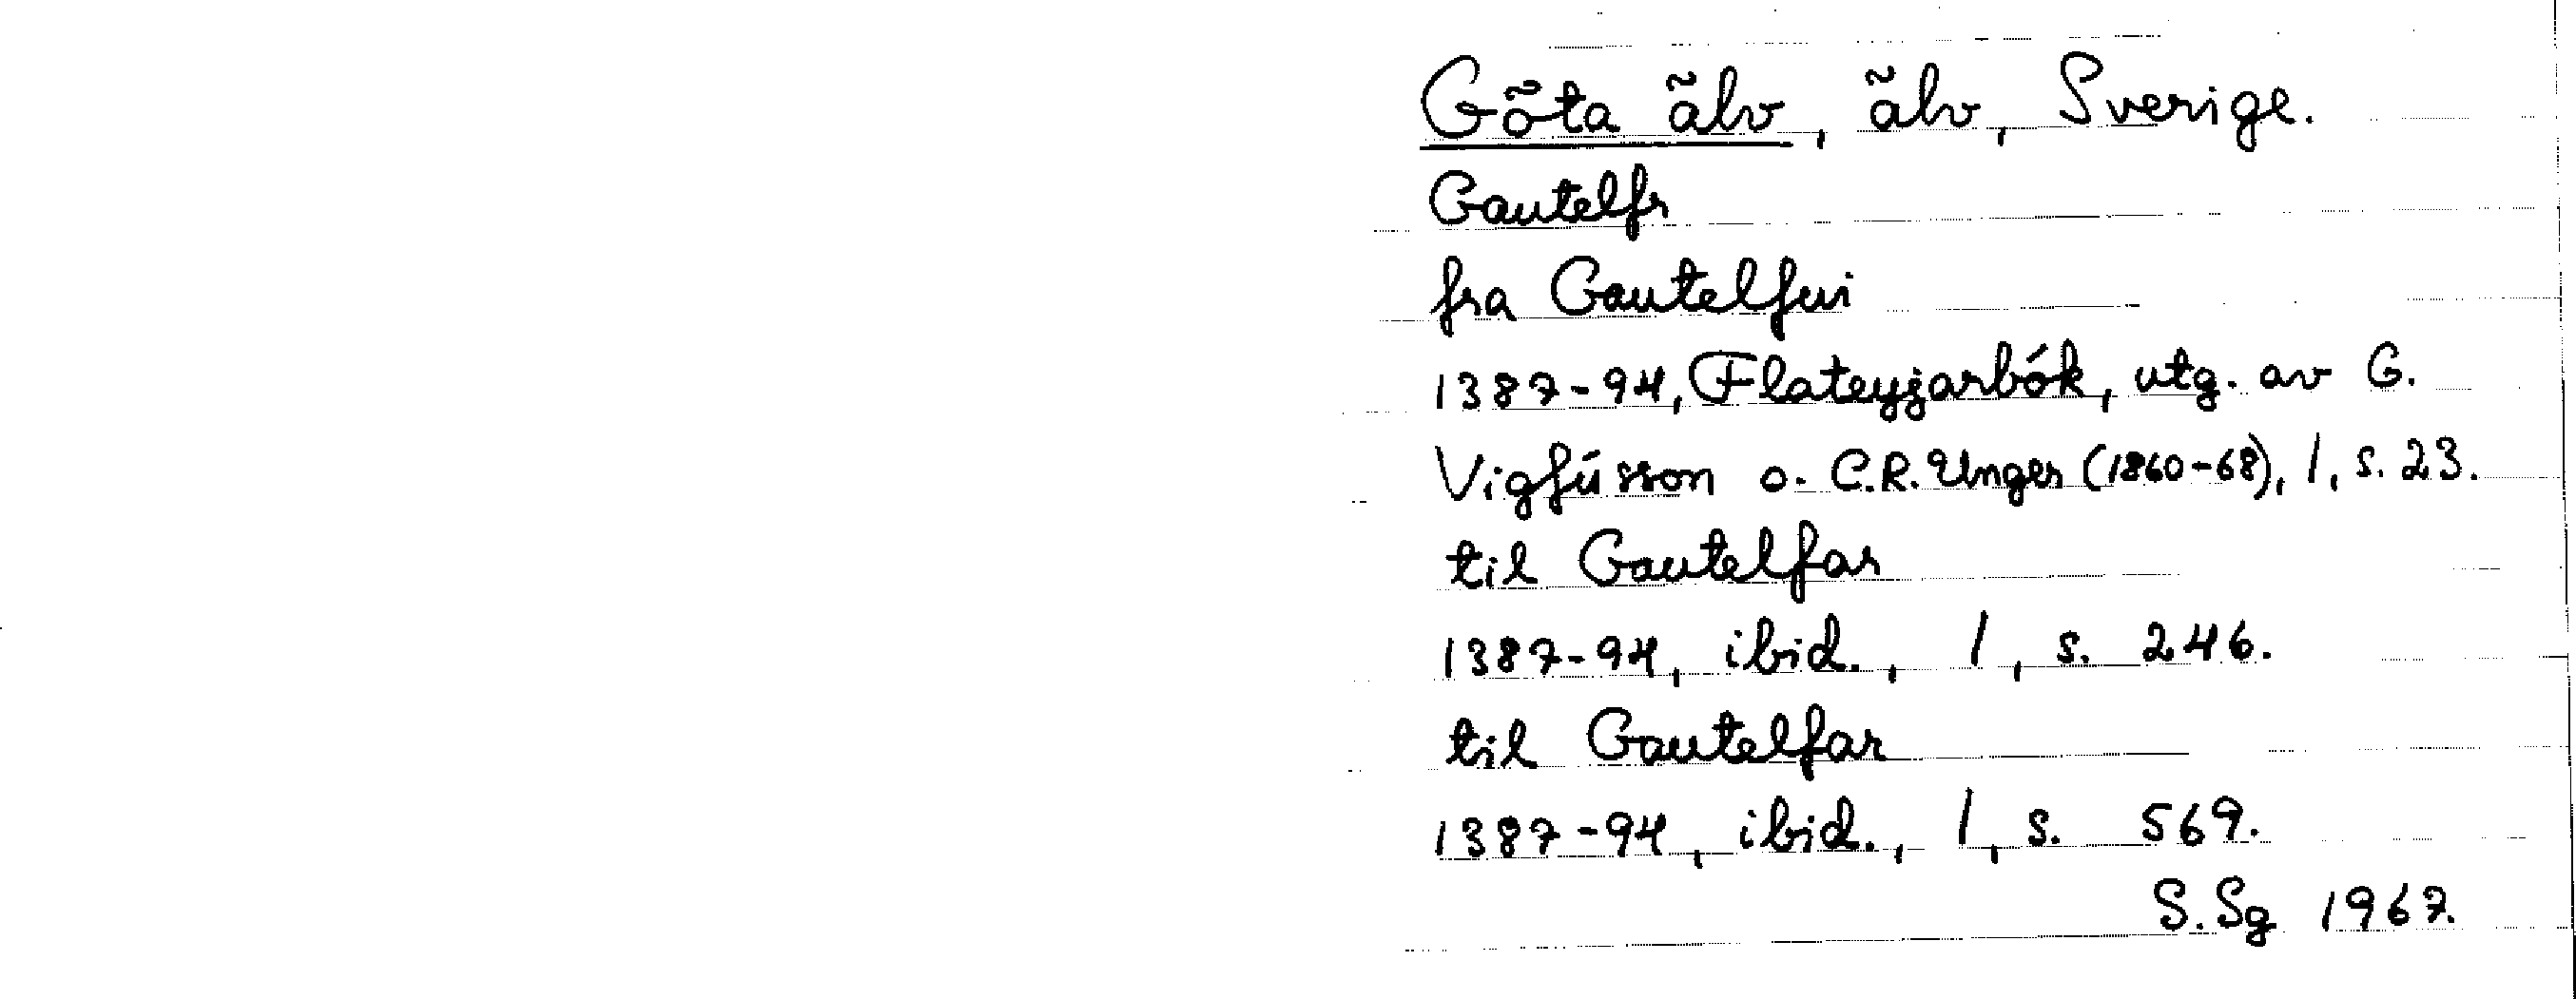 Göta älv, älv, Sverige.
Gautelfr
fra Gautelfui
1387-94, Flateyjarbók, utg. av G.
Vigfússon o. C.R. Unger (1860-68), 1, s. 23.
til Gautelfar
1387-94, ibid., 1, s. 246.
til Gautelfar
1387-94, ibid., 1, s. 569.
S.Sg 1967.